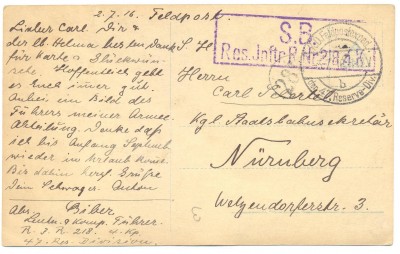 2.7.16. Feldpost.
Lieber Carl. Dir &
der lb. Helma besten Dank
für Karte & Glückwün-
sche. Hoffentlich geht
es Euch immer gut.
Anbei ein Bild des
Führers meiner Armee-
Abteilung. Denke daß
ich bis Anfang Septemb
wieder in Urlaub komme.
Bis dahin herzl. Grüße
Dein Schwager Anton
Abs. Biber
Leutn. & Komp. Führer
R. I. R. 218. 4. Kp.
47. Res. Division.
S. B.
Res. Inftr. R. Nr. 218
Herrn
Carl
Kgl Staatsbahnsekretär
Nürnberg
Welzendorferstr. 3.
b
47. Reserve-Div.